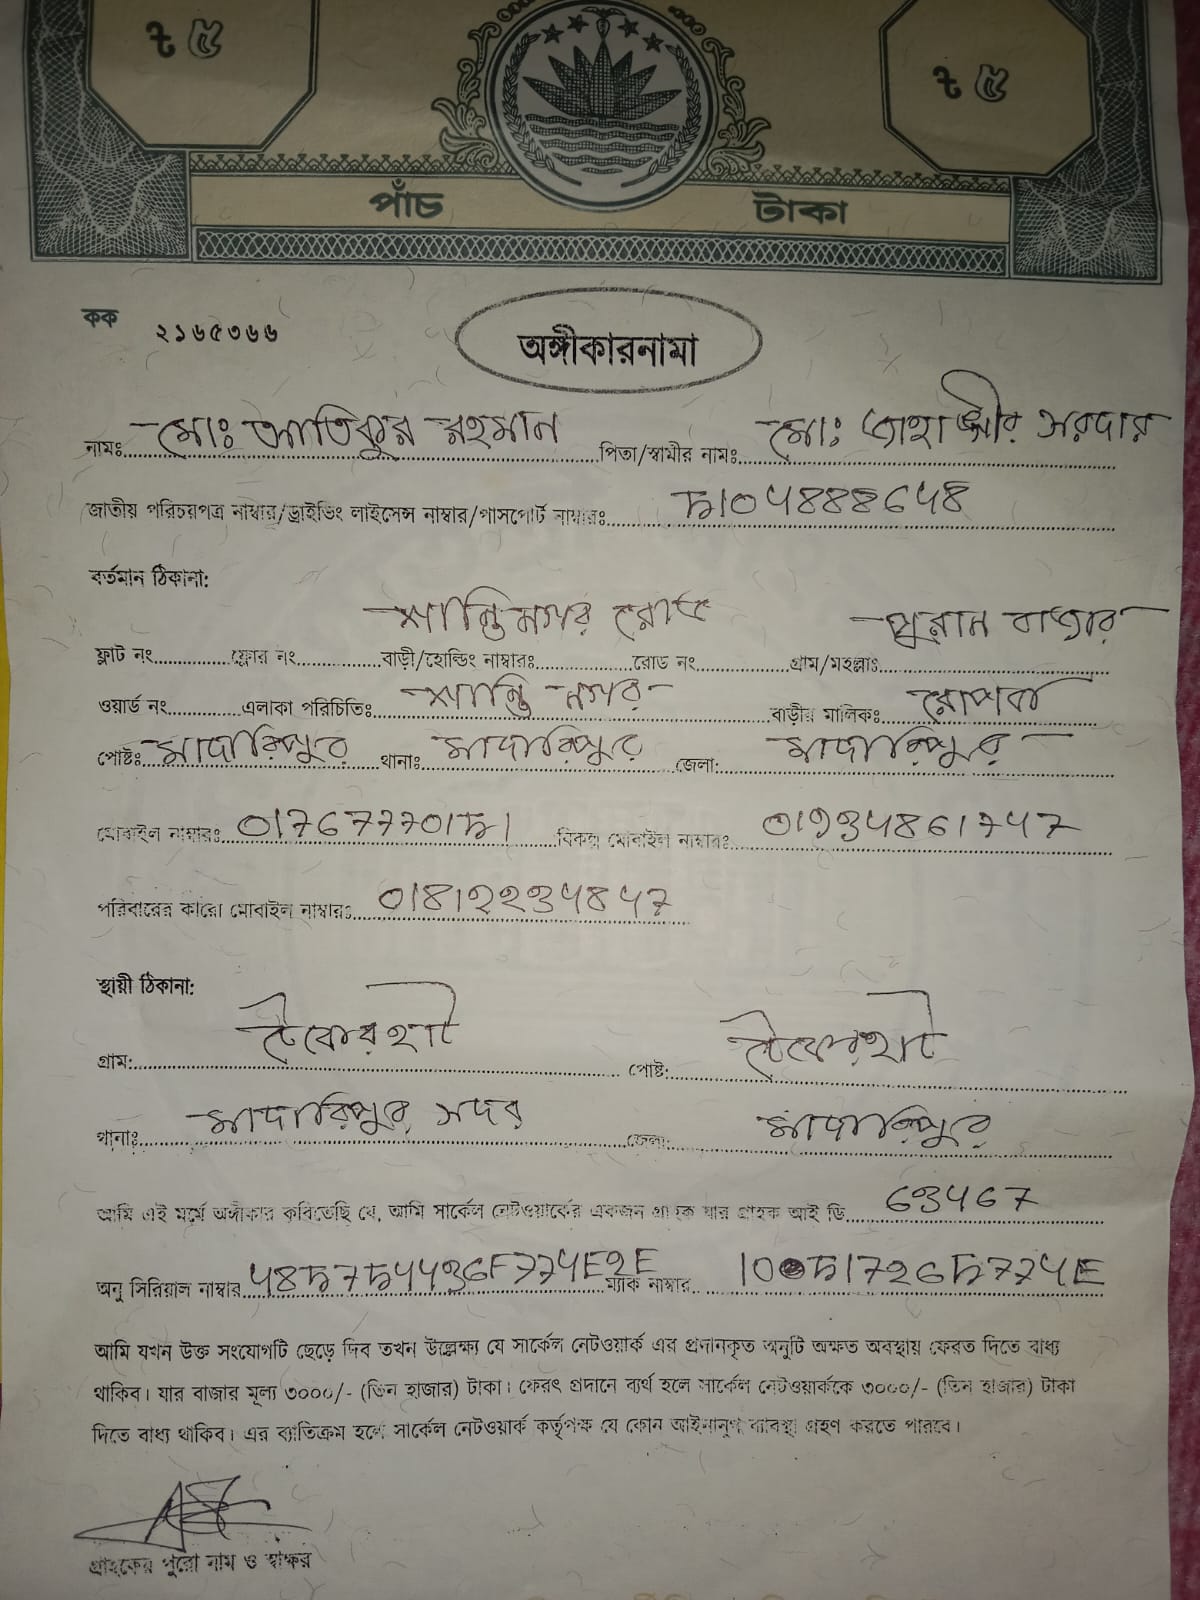 ৳ ৫
৳ ৫
পাঁচ টাকা
কক ২১৬৫৩৬৬
অঙ্গীকারনামা
নামঃ মোঃ আতিকুর রহমান পিতা/স্বামীর নামঃ মোঃ জাহাঙ্গীর সরদার
জাতীয় পরিচয়পত্র নাম্বার/ড্রাইভিং লাইসেন্স নাম্বার/পাসপোর্ট নাম্বারঃ
বর্তমান ঠিকানা:
শান্তিনগর রোড পুরান বাজার
ফ্লাট নং ফ্লোর নং বাড়ী/হোল্ডিং নাম্বারঃ রোড নং গ্রাম/মহল্লাঃ
ওয়ার্ড নং এলাকা পরিচিতিঃ শান্তি নগর বাড়ীর মালিকঃ
পোষ্টঃ মাদারিপুর থানাঃ মাদারিপুর জেলা: মাদারিপুর
মোবাইল নাম্বারঃ বিকল্প মোবাইল নাম্বারঃ 01934861747
পরিবারের কারো মোবাইল নাম্বারঃ 01812234847
স্থায়ী ঠিকানা:
গ্রাম: টেকেরহাট পোষ্ট: টেকেরহাট
থানাঃ মাদারিপুর সদর জেলা: মাদারিপুর
আমি এই মর্মে অঙ্গীকার করিতেছি যে, আমি সার্কেল নেটওয়ার্কের একজন গ্রাহক যার গ্রাহক আই ডি 63467
অনু সিরিয়াল নাম্বার ম্যাক নাম্বার
আমি যখন উক্ত সংযোগটি ছেড়ে দিব তখন উল্লেক্ষ্য যে সার্কেল নেটওয়ার্ক এর প্রদানকৃত অনুটি অক্ষত অবস্থায় ফেরত দিতে বাধ্য
থাকিব। যার বাজার মূল্য ৩০০০/- (তিন হাজার) টাকা। ফেরৎ প্রদানে ব্যর্থ হলে সার্কেল নেটওয়ার্ককে ৩০০০/- (তিন হাজার) টাকা
দিতে বাধ্য থাকিব। এর ব্যতিক্রম হলে সার্কেল নেটওয়ার্ক কর্তৃপক্ষ যে কোন আইনানুগ ব্যবস্থা গ্রহণ করতে পারবে।
গ্রাহকের পুরো নাম ও স্বাক্ষর